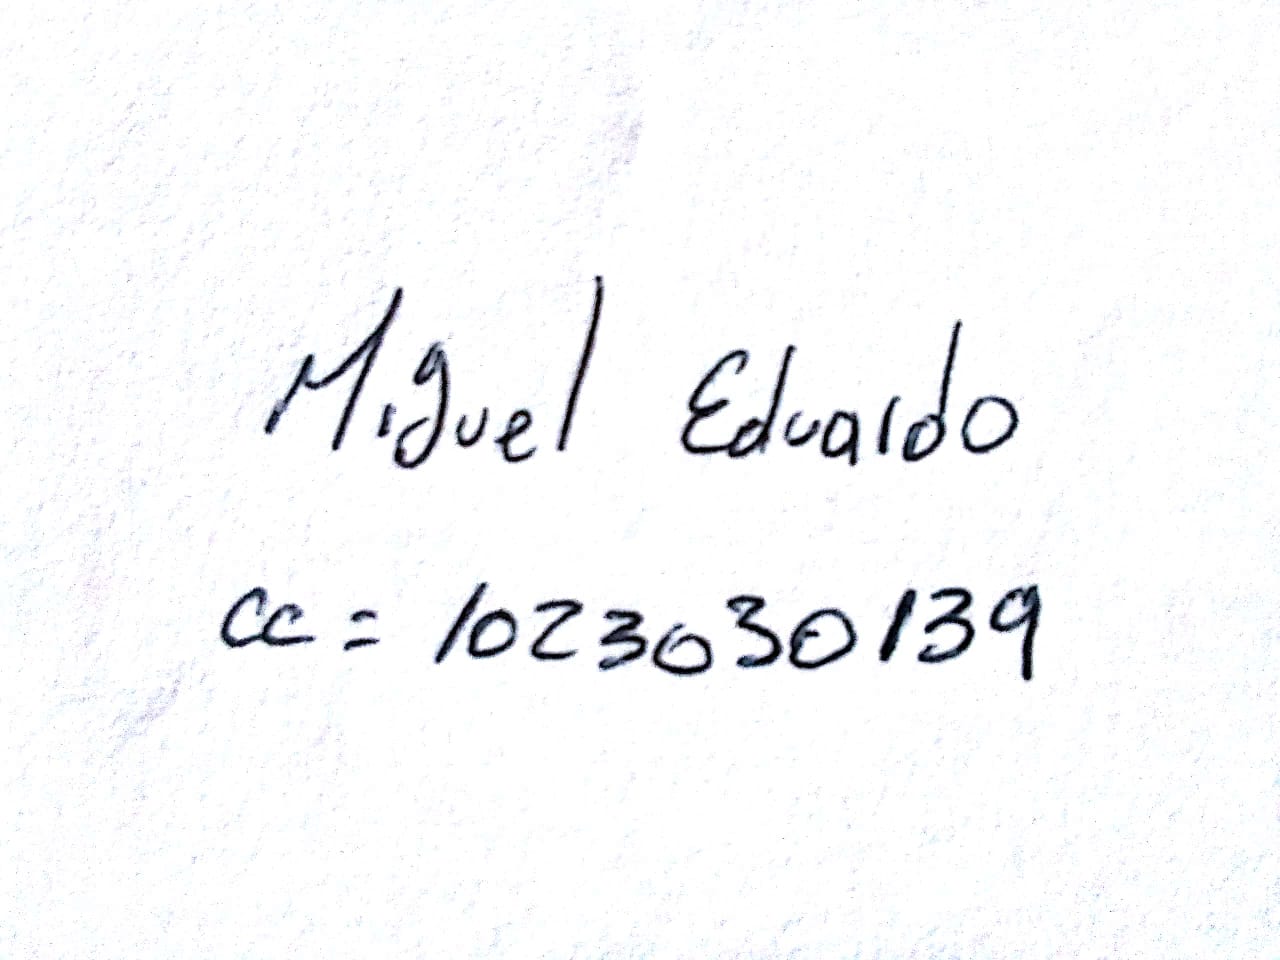 Miguel Eduardo
cc = 1023030139